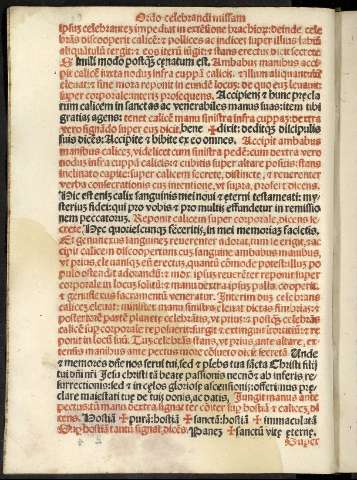 Ordo celebrandi missam
ipsius celebrantes impediat in extẽsione brachiorum: deinde cele
brãs discooperit calicẽ: et pollices ac indices super illius labrũ
aliquãtulũ tergit: et eos iterũ iũgit: et stans erectus dicit secrete
Simili modo postq̃ cenatum est. Ambabus manibus acci-
pit calicẽ iuxta nodus infra cuppã calicis et illum aliquantulũ
eleuat: et sine mora reponit in eundẽ locuz: de quo eũ leuauit:
super corporale: inferius prosequens. Accipiens et hunc preclã
rum calicem in sanctas ac venerabiles manus suas: item tibi
gratias agens: tenet calicẽ manu sinistra infra cuppaz: dextra
vero signãdo super euz dicit. bene ✠ dixit: deditq̃ discipulis
suis dicẽs: Accipite et bibite ex eo omnes. Accipit ambabus
manibus calicẽ, videlicet cum sinistra pedẽ: cum dextra vero
nodus infra cuppã calicis: et cubitis super altare positis: stans
inclinato capite: super calicem secrete, distincte, et reuerenter
verba consecrationis cum intentione, vt supra, profert dicens.
Hic est enim calix sanguinis mei noui et eterni testamenti: my-
sterium fidei: qui pro vobis et pro multis effundetur in remissio
nem peccatorum. Reponit calicem super corporale, dicens se
crete. Hec quotiescunq̃ feceritis, in mei memoriaz facietis.
Et genuflexus sanguinez reuerenter adorat, tum se erigit, et ac
cipit calicem discoopertum cum sanguine ambabus manibus,
vt prius, eleuansq̃ eũ erectũ, quantũ cõmode potest illuz po
pulo ostendit adorandũ: et mox ipsuz reuerẽter reponit super
corporale in locum solitũ: et manu dextra ipsuz palla cooperit
et genuflexus sacramentũ veneratur. Interim dum celebrans
calicem eleuat: minister manu sinistra eleuat dicius fimbrias: et
posteriorẽ partẽ planete celebrãtis, vt prius: et postq̃ celebrãs
calicẽ sup corporale reposuerit: surgit et extinguit intortitiũ et re
ponit in locũ suũ. Tũc celebrãs stans, vt prius, ante altare, ex
tensis manibus ante pectus more cõsueto dicit secrete. Unde
et memores dñe nos serui tui, sed et plebs tua sãcta Christi filij
tui dñi nri Jesu christi tã beate passionis necnõ et ab inferis re-
surrectionis: sed et in celos gloriose ascensionis: offerimus pre-
clare maiestati tue de tuis donis, ac datis. Jungit manus ante
pectus: tũ manu dextra signat ter cõiter sup hostiã et calicez, di
cens. Hostiã ✠ purã: hostiã ✠ sanctã: hostiã ✠ immaculatã
Sup hostiã tantũ signat, dicẽs. Panez ✠ sanctũ vite eterne,
Super